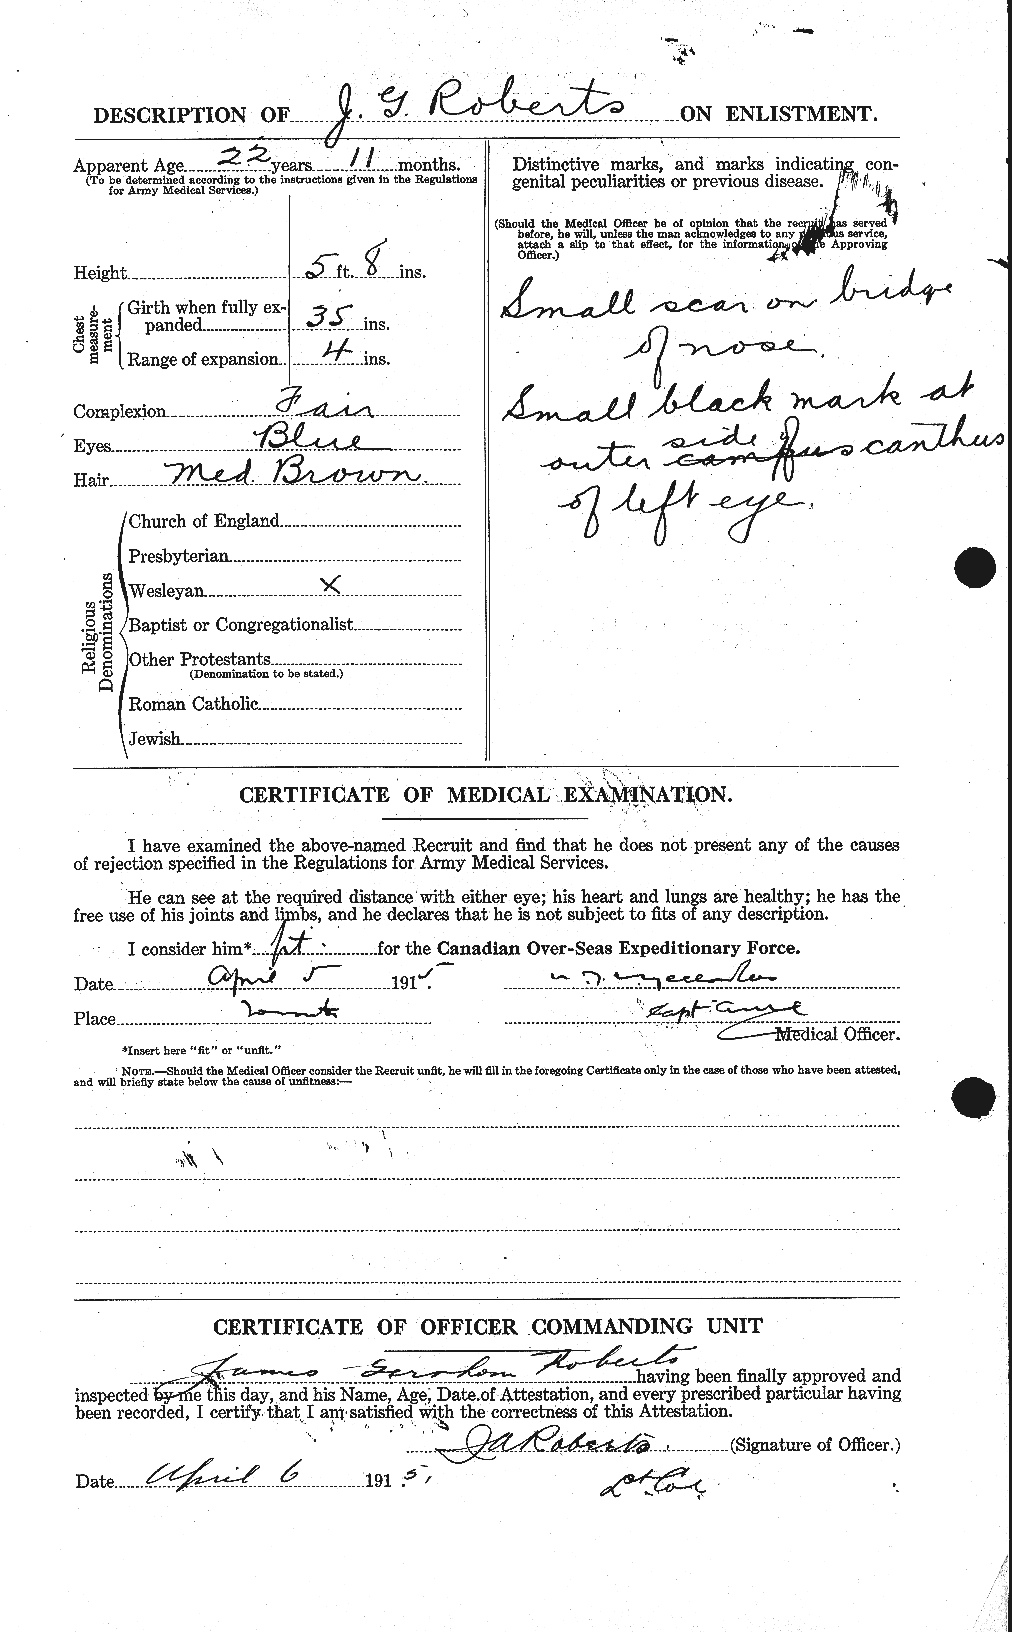 DESCRIPTION OF J. G. Roberts ON ENLISTMENT.
Apparent Age 22 years 11 months.
(To be determined according to the instructions given in the Regulations
for Army Medical Services.)
Height 5 ft. 8 ins.
Chest measurement
Girth when fully ex-
panded 35 ins.
Range of expansion 4 ins.
Complexion Fair
Eyes Blue
Hair Med. Brown.
Religious Denominations
Church of England
Presbyterian
Wesleyan X
Baptist or Congregationalist
Other Protestants
(Denomination to be stated.)
Roman Catholic
Jewish
Distinctive marks, and marks indicating con-
genital peculiarities or previous disease.
(Should the Medical Officer be of opinion that the recruit has served
before, he will, unless the man acknowledges to any previous service,
attach a slip to that effect, for the information of the Approving
Officer.)
Small scar on bridge
of nose.
Small black mark at
outer side of canthus
of left eye.
CERTIFICATE OF MEDICAL EXAMINATION.
I have examined the above-named Recruit and find that he does not present any of the causes
of rejection specified in the Regulations for Army Medical Services.
He can see at the required distance with either eye; his heart and lungs are healthy; he has the
free use of his joints and limbs, and he declares that he is not subject to fits of any description.
I consider him* fit for the Canadian Over-Seas Expeditionary Force.
Date April 5 1915.
Place Toronto
Capt
Medical Officer.
*Insert here "fit" or "unfit."
NOTE.—Should the Medical Officer consider the Recruit unfit, he will fill in the foregoing Certificate only in the case of those who have been attested,
and will briefly state below the cause of unfitness:—
CERTIFICATE OF OFFICER COMMANDING UNIT
James Roberts having been finally approved and
inspected by me this day, and his Name, Age, Date of Attestation, and every prescribed particular having
been recorded, I certify that I am satisfied with the correctness of this Attestation.
JA Roberts (Signature of Officer.)
Date April 6 1915.
Lt Col